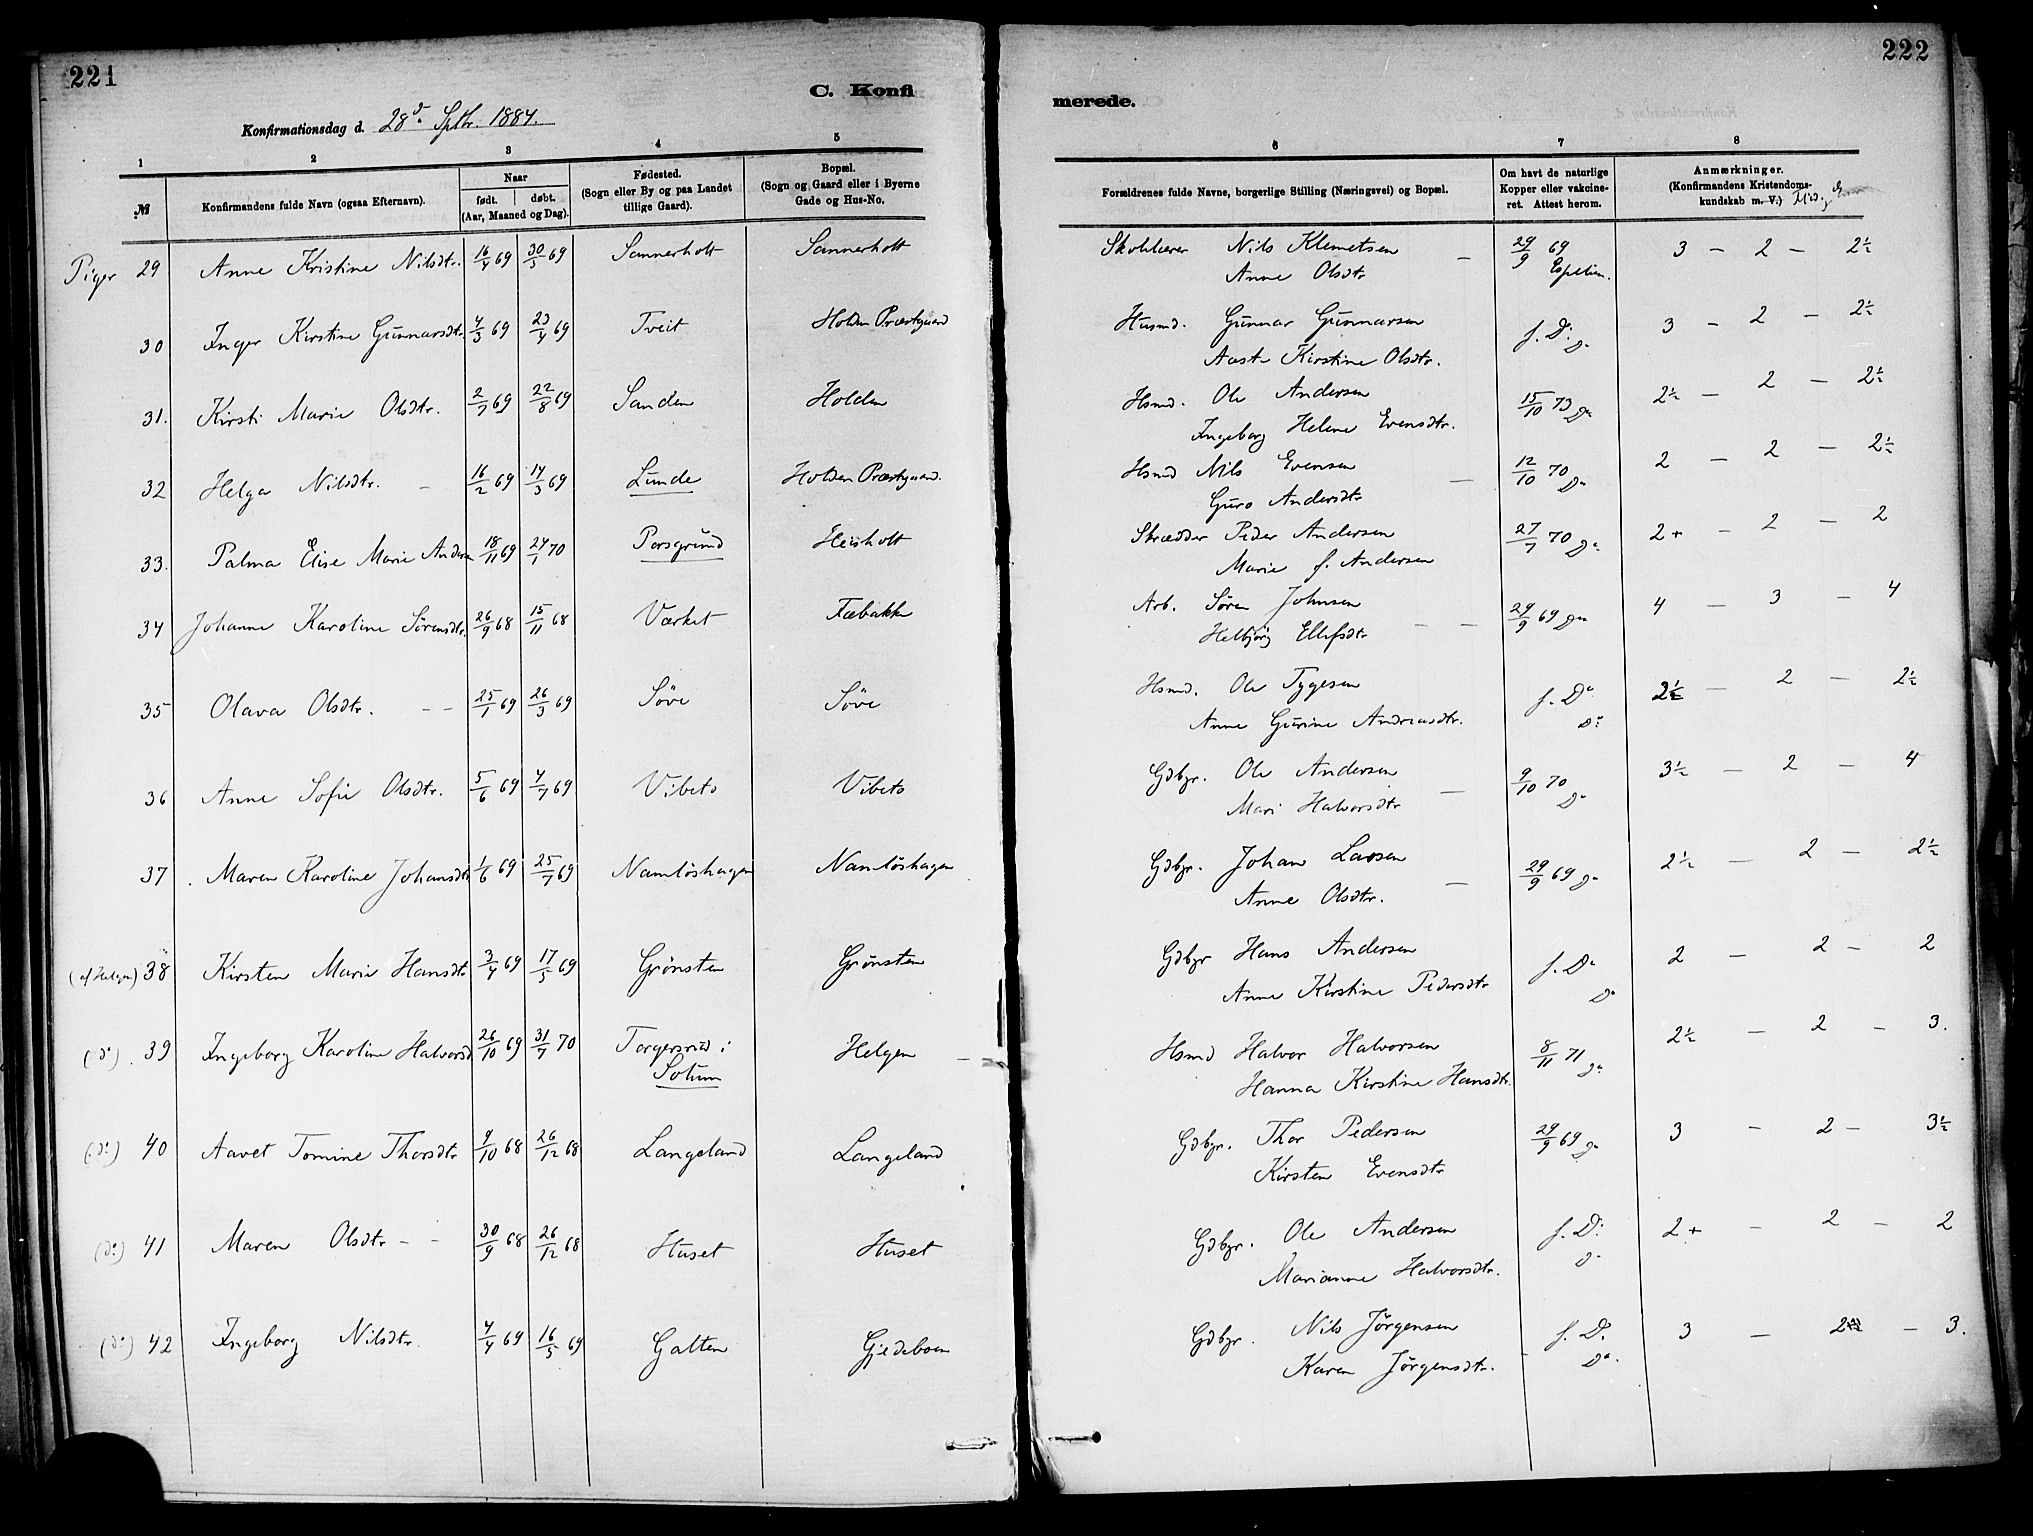 221
222
C. Konfi
merede.
Konfirmationsdag d. 28de Sptbr. 1884.
1 2 3 4 5 6 7 8
№
Konfirmandens fulde Navn (ogsaa Efternavn).
Naar
født. døbt.
(Aar, Maaned og Dag).
Fødested.
(Sogn eller By og paa Landet
tillige Gaard).
Bopæl.
(Sogn og Gaard eller i Byerne
Gade og Hus-No.
Forældrenes fulde Navne, borgerlige Stilling (Næringsvei) og Bopæl.
Om havt de naturlige
Kopper eller vakcine-
ret. Attest herom.
Anmærkninger.
(Konfirmandens Kristendoms-
kundskab m. V.)
Piger 29 Anne Kristine Nilsdtr. 16/4 69 30/5 69 Sannerholt Sannerholt Skolelærer Nils Klemetsen 29/9 69 3 - 2 - 2½
Anne Olsdtr Espelin.
30 Inger Kirstine Gunnarsdtr. 4/3 69 23/4 69 Tveit Holden Præstgaard Husmd. Gunnar Gunnarsen f. Do. 3 - 2 - 2½
Aaste Kirstine Olsdtr. Do
31. Kirsti Marie Olsdtr. 2/7 69 22/8 69 Sanden Holden Hsmd. Ole Andersen 15/10 73 Do 2½ - 2 - 2½
Ingeborg Helene Evensdtr.
32 Helga Nilsdtr. - 16/2 69 14/3 69 Lunde Holden Præstgaard. Hsmd Nils Evensen 12/10 70 Do 2 - 2 - 2½
Guro Andersdtr
33. Palma Elise Marie Andersen 18/11 69 24/1 70 Porsgrund Heisholt Skrædder Peder Andersen 27/7 70 Do 2+ - 2 - 2
Marie f. Andersen
34 Johanne Karoline Sørensdtr. 26/9 68 15/11 68 Værket Fæbakke Arb. Søren Johnsen 29/9 69 Do 4 - 3 - 4
Helbjörg Ellefsdtr
35 Olava Olsdtr. - - 25/1 69 26/3 69 Söve Söve Hsmd. Ole Tygesen f. Do 2½ - 2 - 2½
Anne Gurine Andreasdtr. Do
36 Anne Sofie Olsdtr. 5/6 69 4/7 69 Vibeto Vibeto Gdbgr. Ole Andersen 9/10 70 3½ - 2 - 4
Mari Halvorsdtr Do
37 Maren Karoline Johansdtr 1/6 69 25/7 69 Namlöshagen Namlöshagen Gdbgr. Johan Larsen 29/9 69 Do 2½ - 2 - 2½
Anne Olsdtr.
(af Helgen) 38 Kirsten Marie Hansdtr 3/4 69 17/5 69 Grönsten Grönsten Gdbgr Hans Andersen f. Do 2 - 2 - 2
Anne Kirstine Pedersdtr Do
(do) 39 Ingeborg Karoline Halvorsd 26/10 69 31/7 70 Torgersrud i Helgen Hsmd Halvor Halvorsen 8/11 71 Do 2½ - 2 - 3.
Solum Hanna Kirstine Hansdtr.
(do) 40 Aavet Tomine Thorsdtr 9/10 68 26/12 68 Langeland Langeland Gdbgr. Thor Pedersen 29/9 69 Do 3 - 2 - 3½
Kirsten Evensdtr
(do) 41 Maren Olsdtr - - 30/9 68 26/12 68 Huset Huset Gdbgr. Ole Andersen f. Do 2+ - 2 - 2
Marianne Halvorsdtr. Do
(do) 42 Ingeborg Nilsdtr. 4/4 69 16/5 69 Galten Gjedeboen Gdbgr. Nils Jörgensen f. Do. 3 - 2 - 3.
Karen Jörgensdtr. Do.